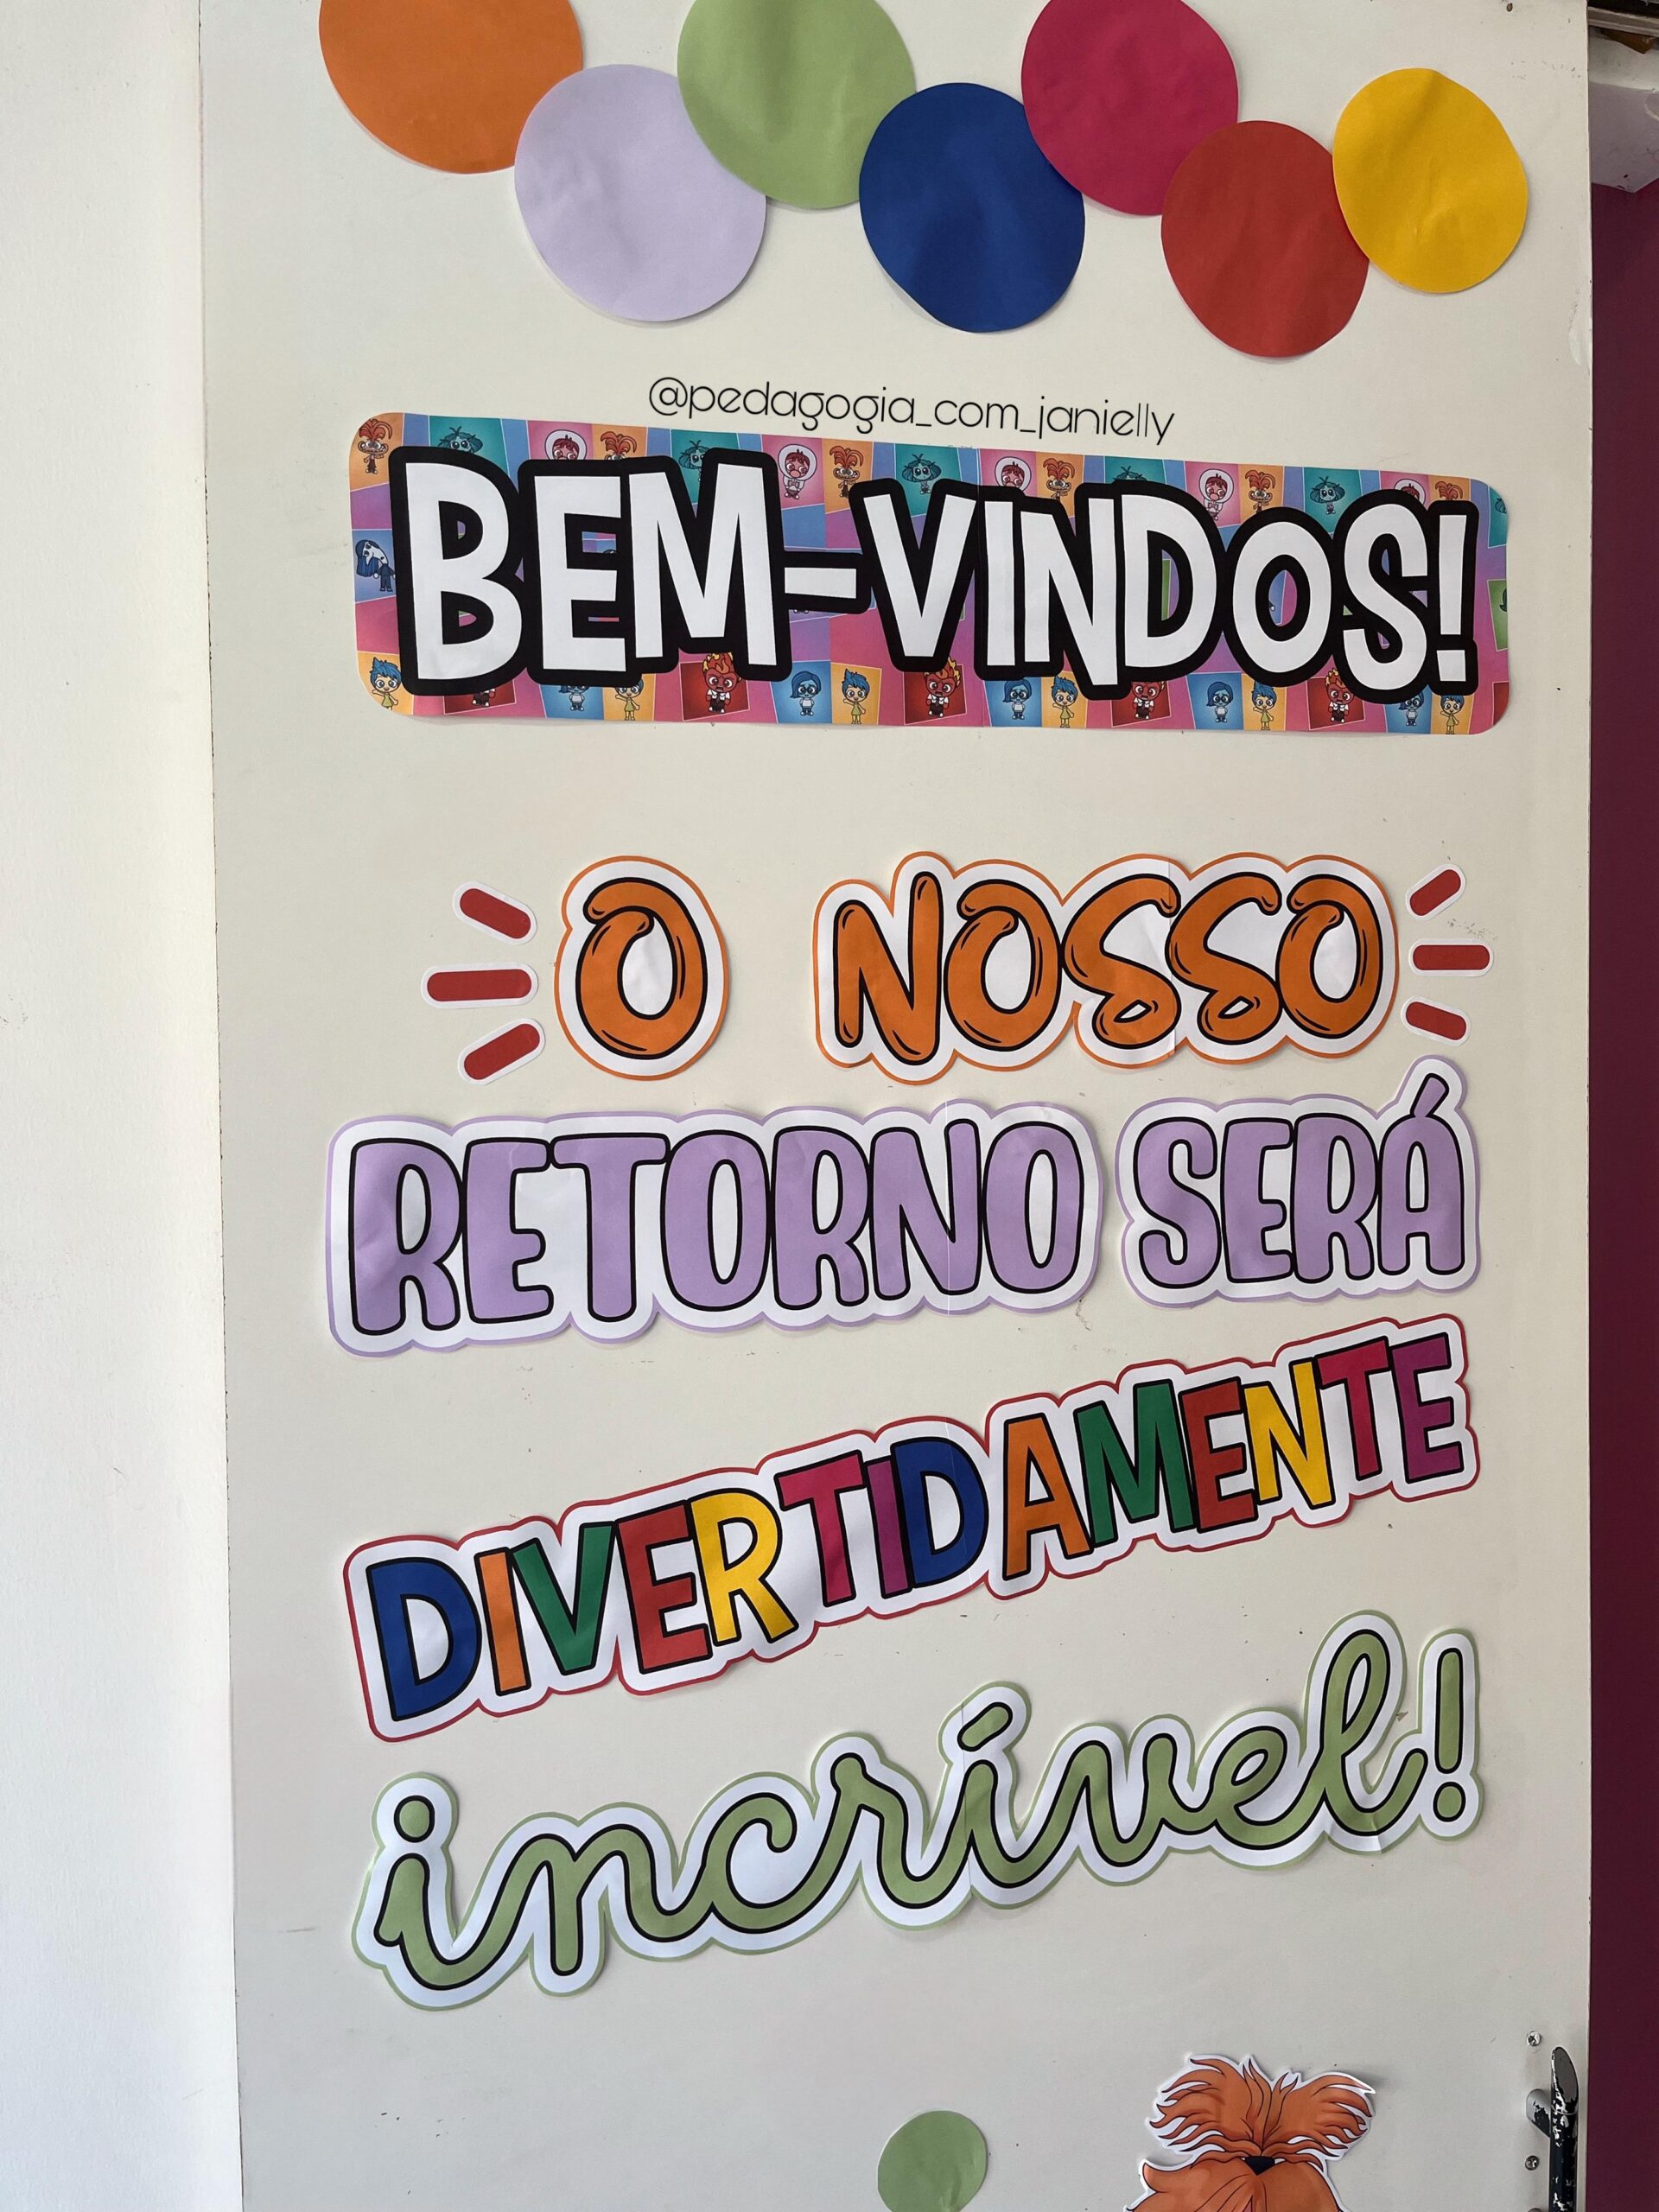 @pedagogia_com_janielly
BEM-VINDOS!
O NOSSO
RETORNO SERÁ
DIVERTIDAMENTE
incrível!